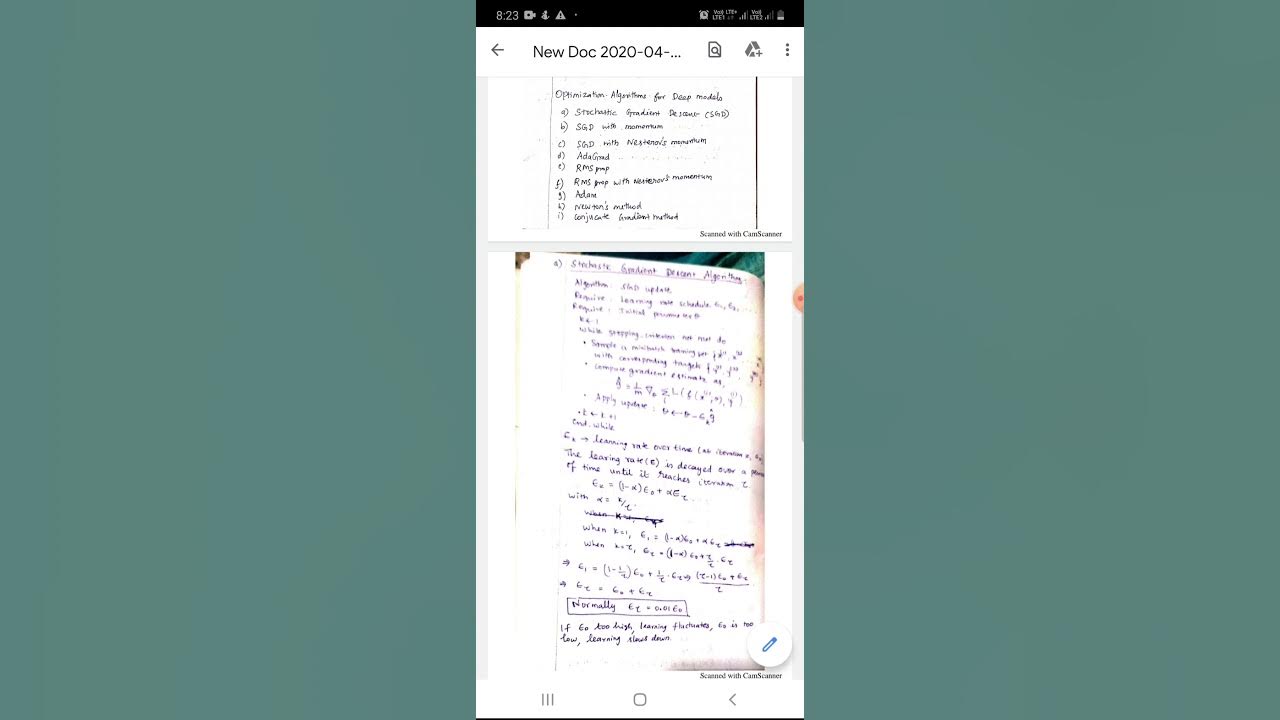 8:23
Vo)) LTE+ LTE1 Vo)) LTE2
New Doc 2020-04-...
Optimization Algorithms for Deep models
a) Stochastic Gradient Descent (SGD)
b) SGD with momentum
c) SGD with Nesterov's momentum
d) AdaGrad
e) RMS prop
f) RMS prop with Nesterov's momentum
g) Adam
h) Newton's method
i) Conjucate Gradient method
Scanned with CamScanner
a) Stochastic Gradient Descent Algorithm
Algorithm: update
Require: Learning rate schedule ε₁, ε₂, ...
Require: Initial parameter θ
k ← 1
while stopping criterion not met do
• Sample a minibatch training set
with corresponding targets
• Compute gradient estimate as,
ĝ = 1/m ∇θ Σ L(f(x⁽ⁱ⁾, θ), y⁽ⁱ⁾)
• Apply update: θ ← θ - εₖ ĝ
• k ← k + 1
End while
εₖ → learning rate over time (at iteration k, εₖ
The learing rate (ε) is decayed over a
of time until it reaches iteration τ.
εₖ = (1-α) ε₀ + α ε_τ
with α = k/τ
when k=1, ε₁ = (1-α)ε₀ + α ε_τ
when k=τ, ε_τ = (1-α) ε₀ + τ/τ . ε_τ
⇒ ε₁ = (1 - 1/τ) ε₀ + 1/τ . ε_τ ⇒ ((τ-1) ε₀ + ε_τ)/τ
⇒ ε_τ = ε₀ + ε_τ
Normally ε_τ = 0.01 ε₀
If ε₀ too high, learning fluctuates, ε₀ is too
low, learning slows down.
Scanned with CamScanner